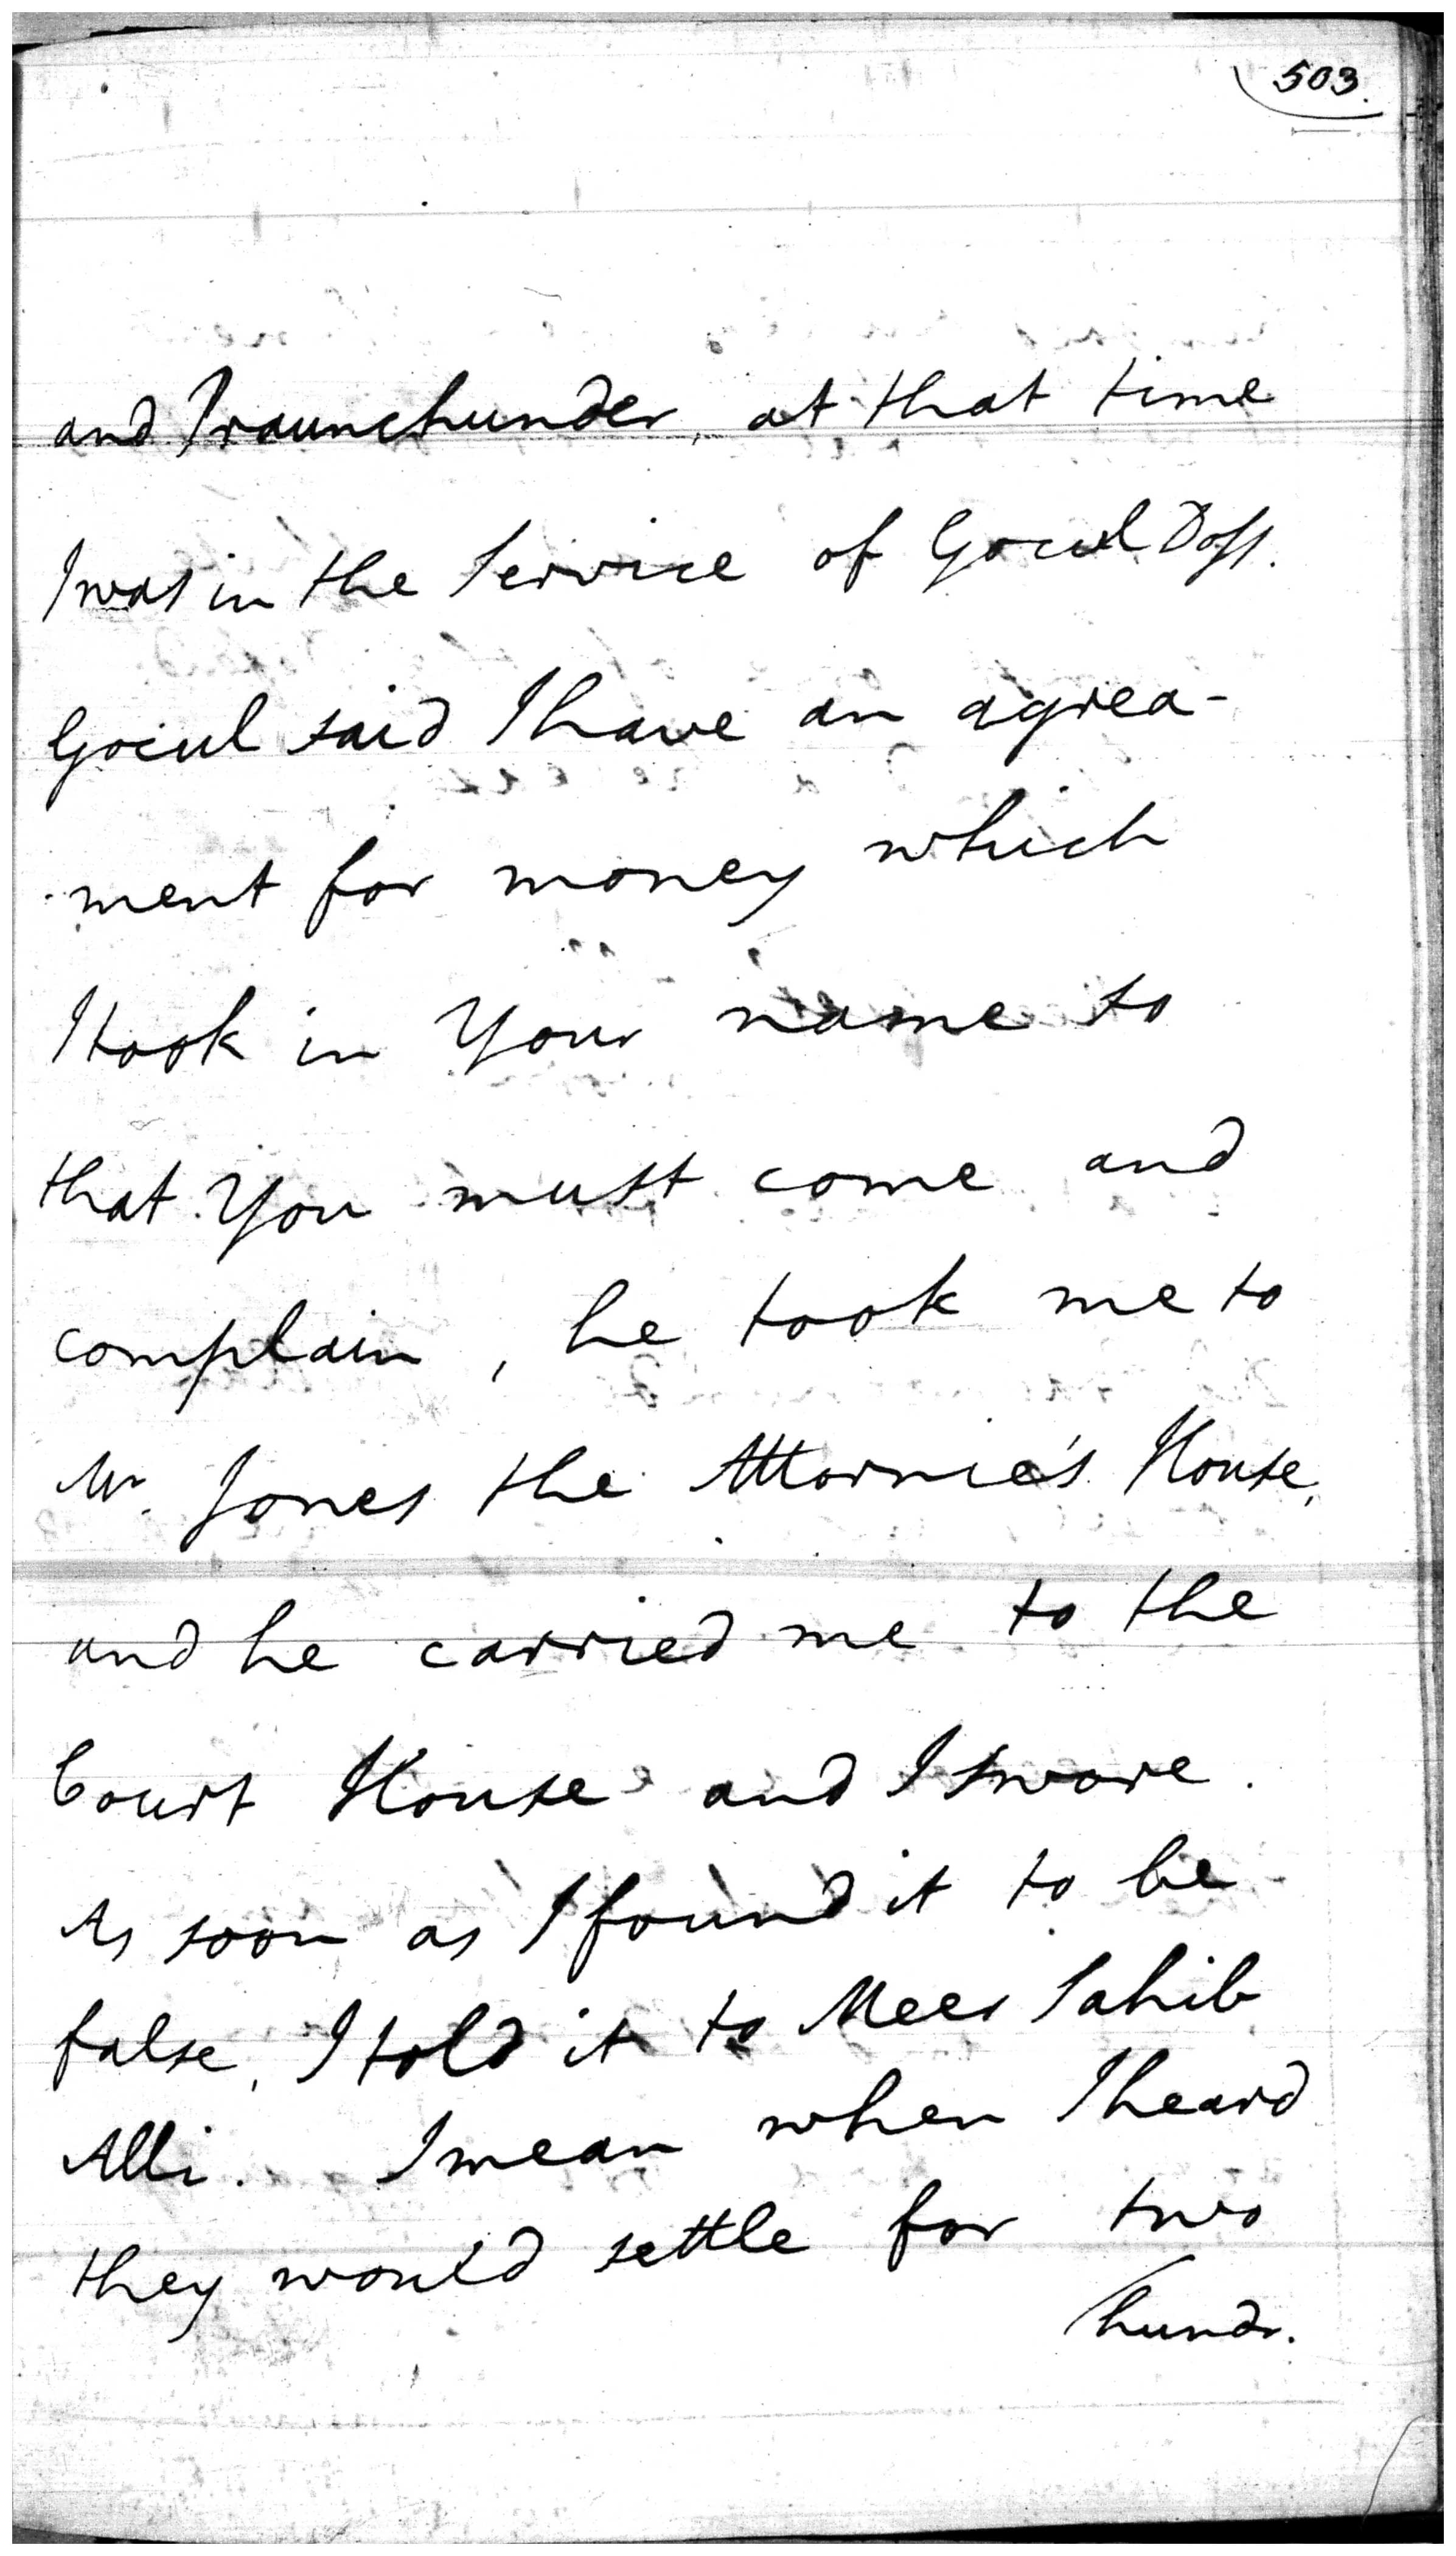 503.
and Praunchunder, at that time
I was in the Service of Gocul Doss.
Gocul said I have an agrea-
ment for money which
I took in Your name to
that You must come and
complain, he took me to
Mr. Jones the Attornie's House,
and he carried me to the
Court House and I swore.
As soon as I found it to be
false, I told it to Meer Sahib
Alli. I mean when I heard
they would settle for two
hundr.